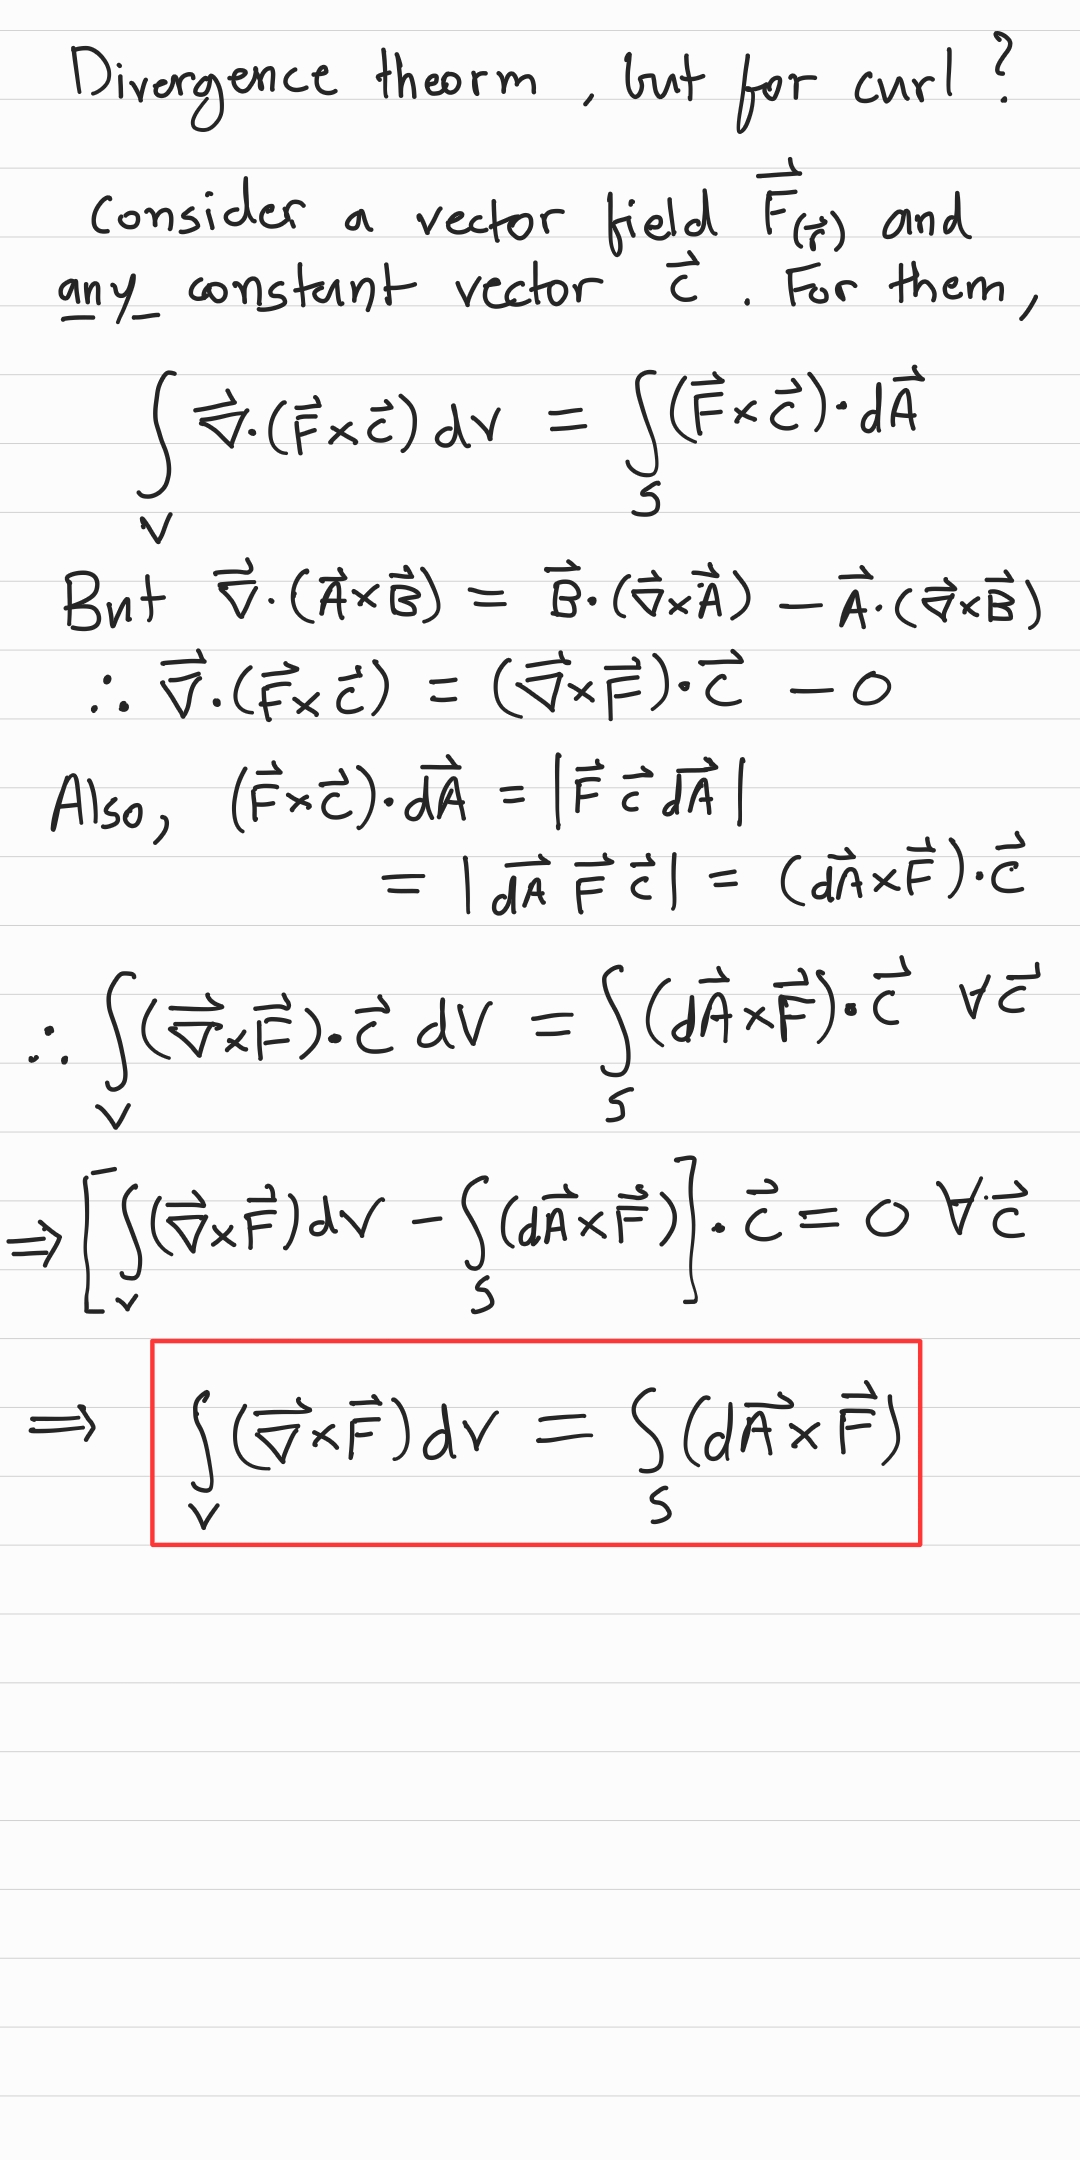 Divergence theorm, but for curl?
Consider a vector field $\vec{F}_{(\vec{r})}$ and
any constant vector $\vec{c}$. For them,
$\int_V \vec{\nabla}\cdot(\vec{F}\times\vec{c})\,dV = \int_S (\vec{F}\times\vec{c})\cdot d\vec{A}$
But $\vec{\nabla}\cdot(\vec{A}\times\vec{B}) = \vec{B}\cdot(\vec{\nabla}\times\vec{A}) - \vec{A}\cdot(\vec{\nabla}\times\vec{B})$
$\therefore \vec{\nabla}\cdot(\vec{F}\times\vec{c}) = (\vec{\nabla}\times\vec{F})\cdot\vec{c} - 0$
Also, $(\vec{F}\times\vec{c})\cdot\vec{dA} = |\vec{F}\ \vec{c}\ \vec{dA}|$
$= |\vec{dA}\ \vec{F}\ \vec{c}| = (d\vec{A}\times\vec{F})\cdot\vec{c}$
$\therefore \int_V (\vec{\nabla}\times\vec{F})\cdot\vec{c}\,dV = \int_S (d\vec{A}\times\vec{F})\cdot\vec{c}\ \forall\vec{c}$
$\Rightarrow \left[\int_V (\vec{\nabla}\times\vec{F})\,dV - \int_S (d\vec{A}\times\vec{F})\right]\cdot\vec{c} = 0\ \forall\vec{c}$
$\Rightarrow \int_V (\vec{\nabla}\times\vec{F})\,dV = \int_S (d\vec{A}\times\vec{F})$